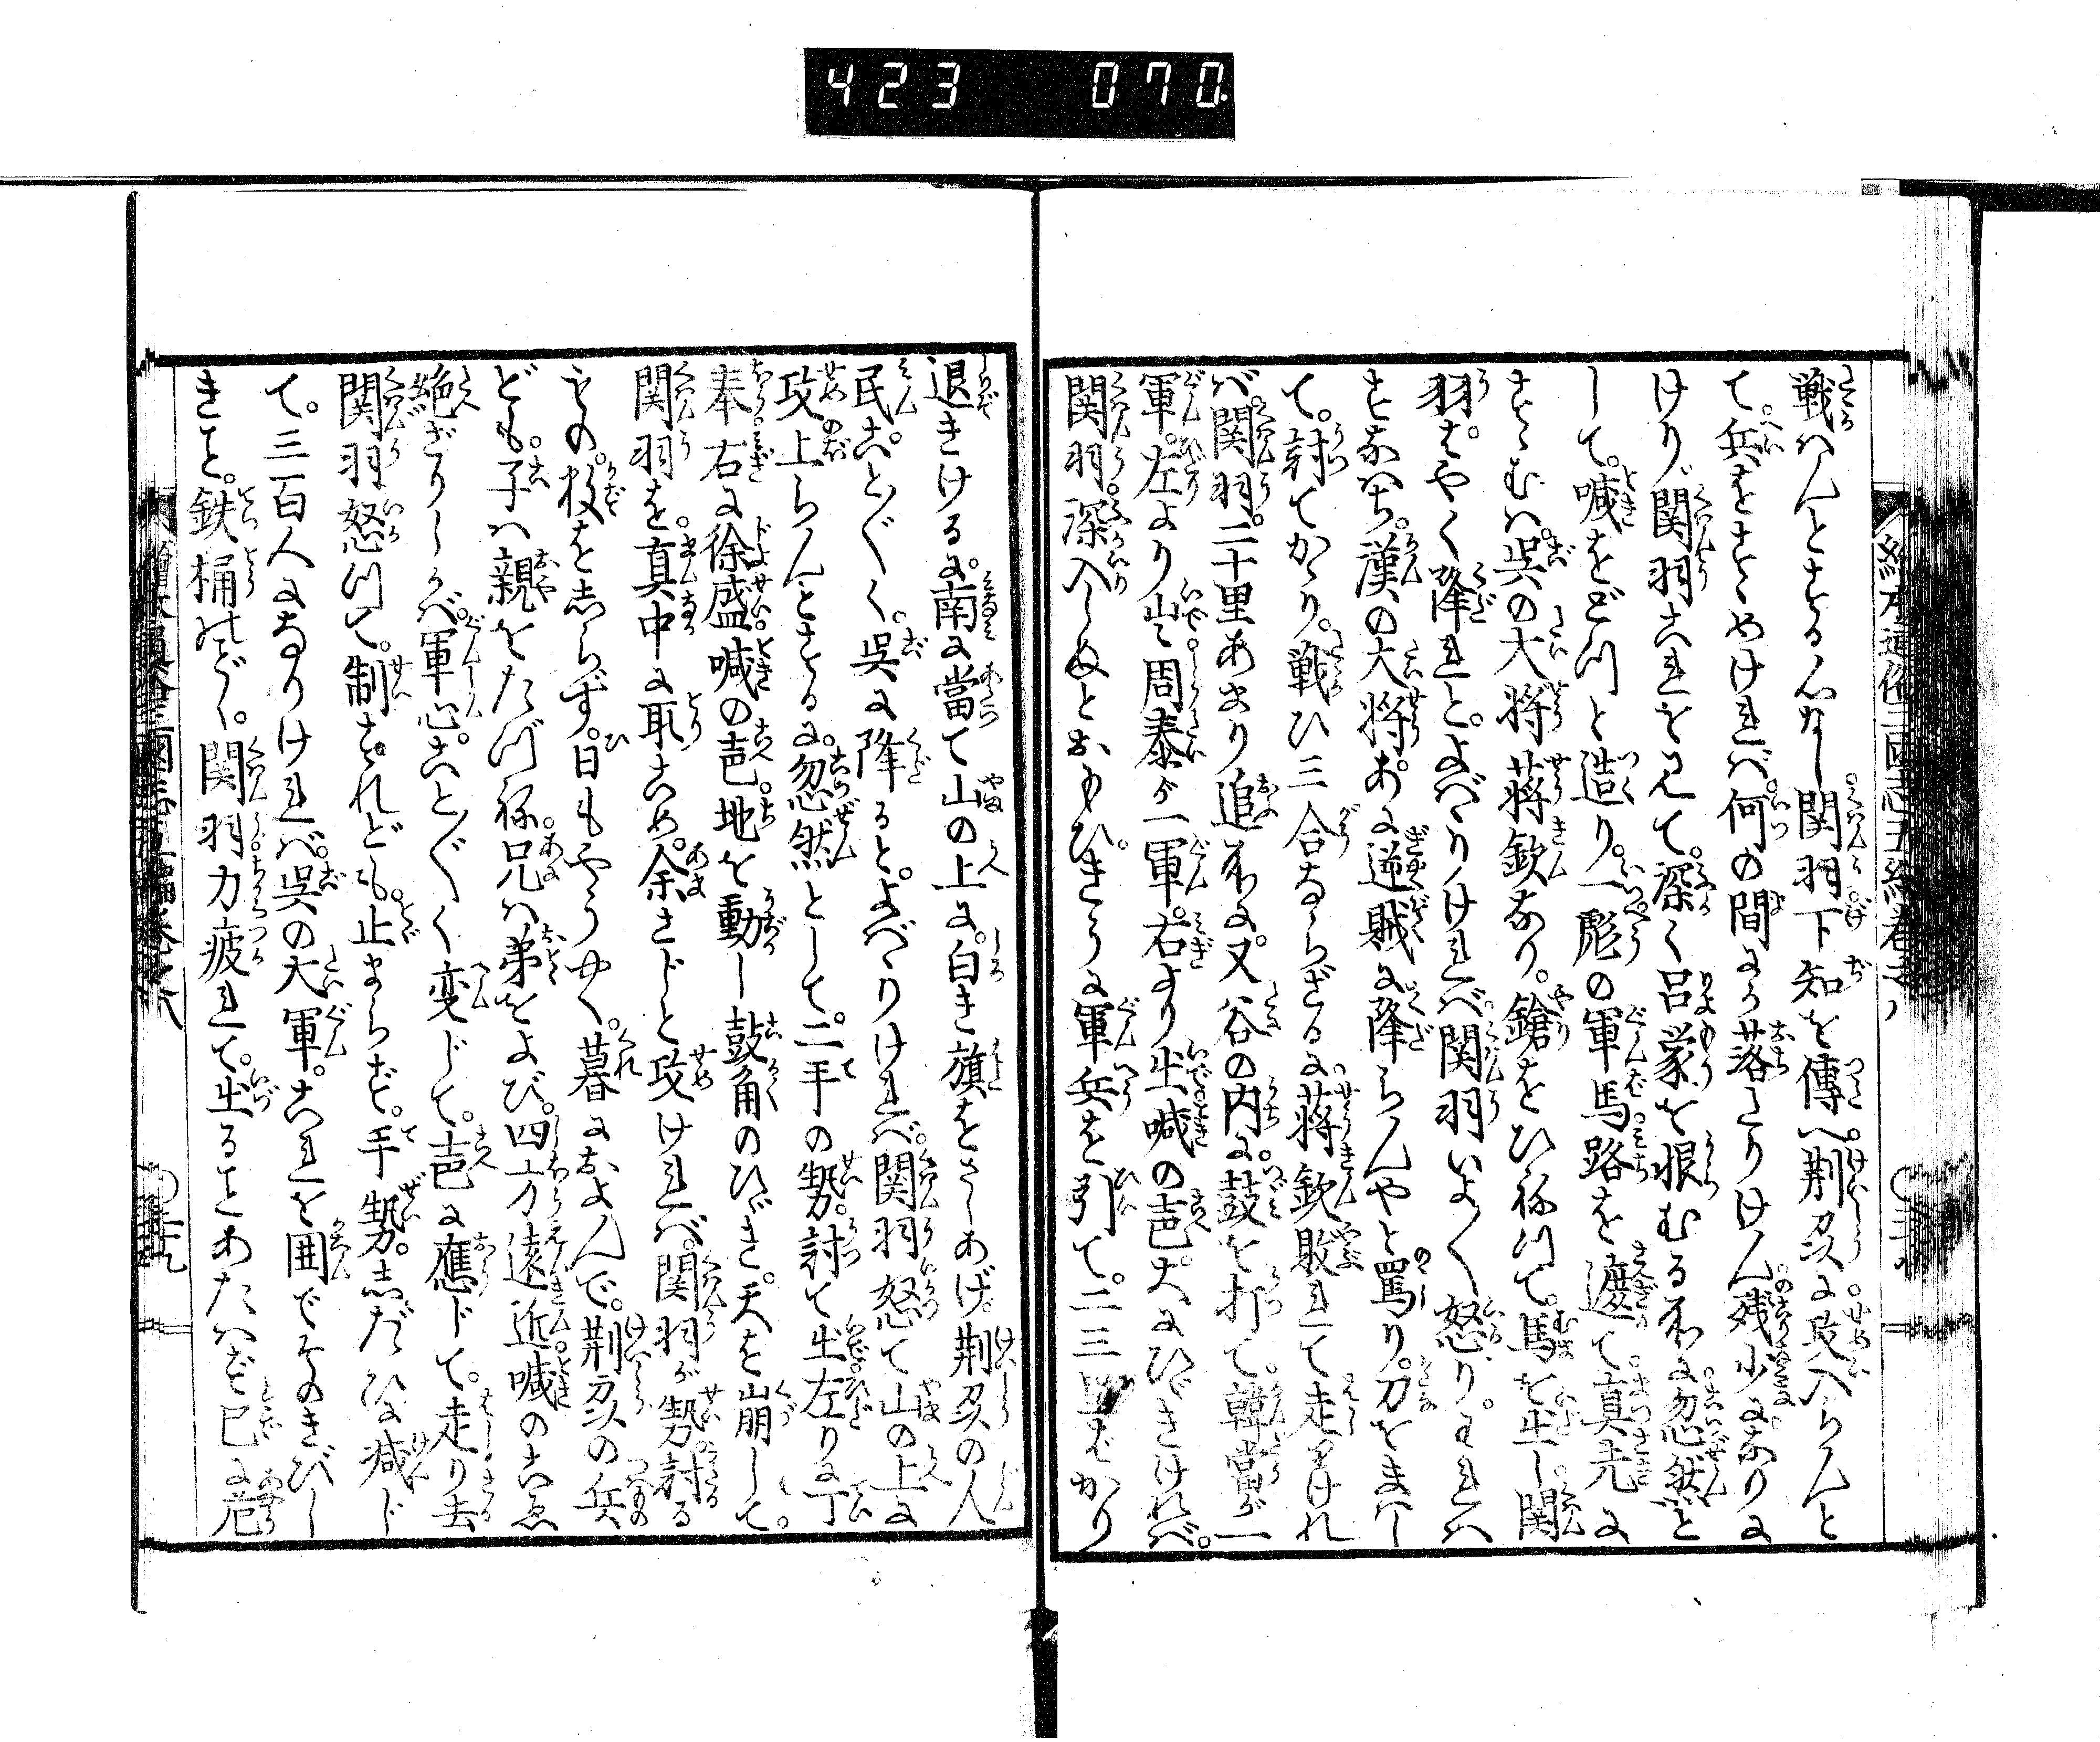 423 070
戦はんとする心なし関羽下知を傳へ荆州に攻入らんと
て兵をすゝめけれバ何の間にか落たりけん残少になりに
けり関羽これを見て深く呂蒙を恨むる所に忽然と
して喊をどつと造り一彪の軍馬路を遮て真先に
すゝむハ呉の大将蒋欽なり鎗をひねつて馬を出し関
羽はやく降れとよばゝりけれバ関羽いよ〳〵怒りわれハ
すなハち漢の大将あに逆賊に降らんやと罵り刀をまハし
て討てかゝり戦ひ三合ならざるに蒋欽敗れて走りけれ
バ関羽二十里あまり追所に又谷の内に鼓を打て韓當が一
軍左より出周泰が一軍右より出喊の声大にひゞきけれバ
関羽深入しぬとおもひきうに軍兵を引て二三里ばかり
退きけるに南に當て山の上に白き旗をさしあげ荆州の人
民こと〴〵く呉に降ると.よばゝりけれバ関羽怒て山の上に
攻上らんとするに忽然として二手の勢討て出左りに丁
奉右に徐盛喊の声地を動し鼓角のひゞき天を崩して
関羽を真中に取こめ余さじと攻けれバ関羽が勢討る
もの数をしらず日もやうやく暮におよんで荆州の兵
ども子ハ親をたづね兄ハ弟をよび四方遠近喊のこゑ
絶ざりしかバ軍心こと〴〵く変じて声に應じて走り去
関羽怒つて制すれども止まらず手勢しだひに減じ
て三百人になりけれバ呉の大軍これを囲でそのきびし
きこと鉄桶のごとく関羽力疲れて出ることあたハず已に危